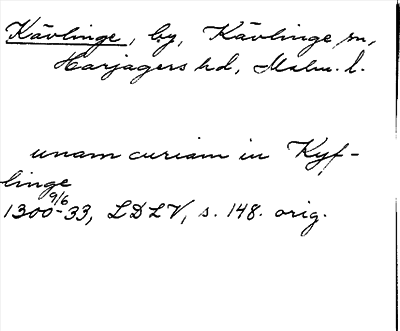 Kävlinge, by, Kävlinge sn,
Harjagers hd, Malm. l.
unam curiam in Kyf-
linge
1300 9/6 -33, LDLV, s. 148. orig.